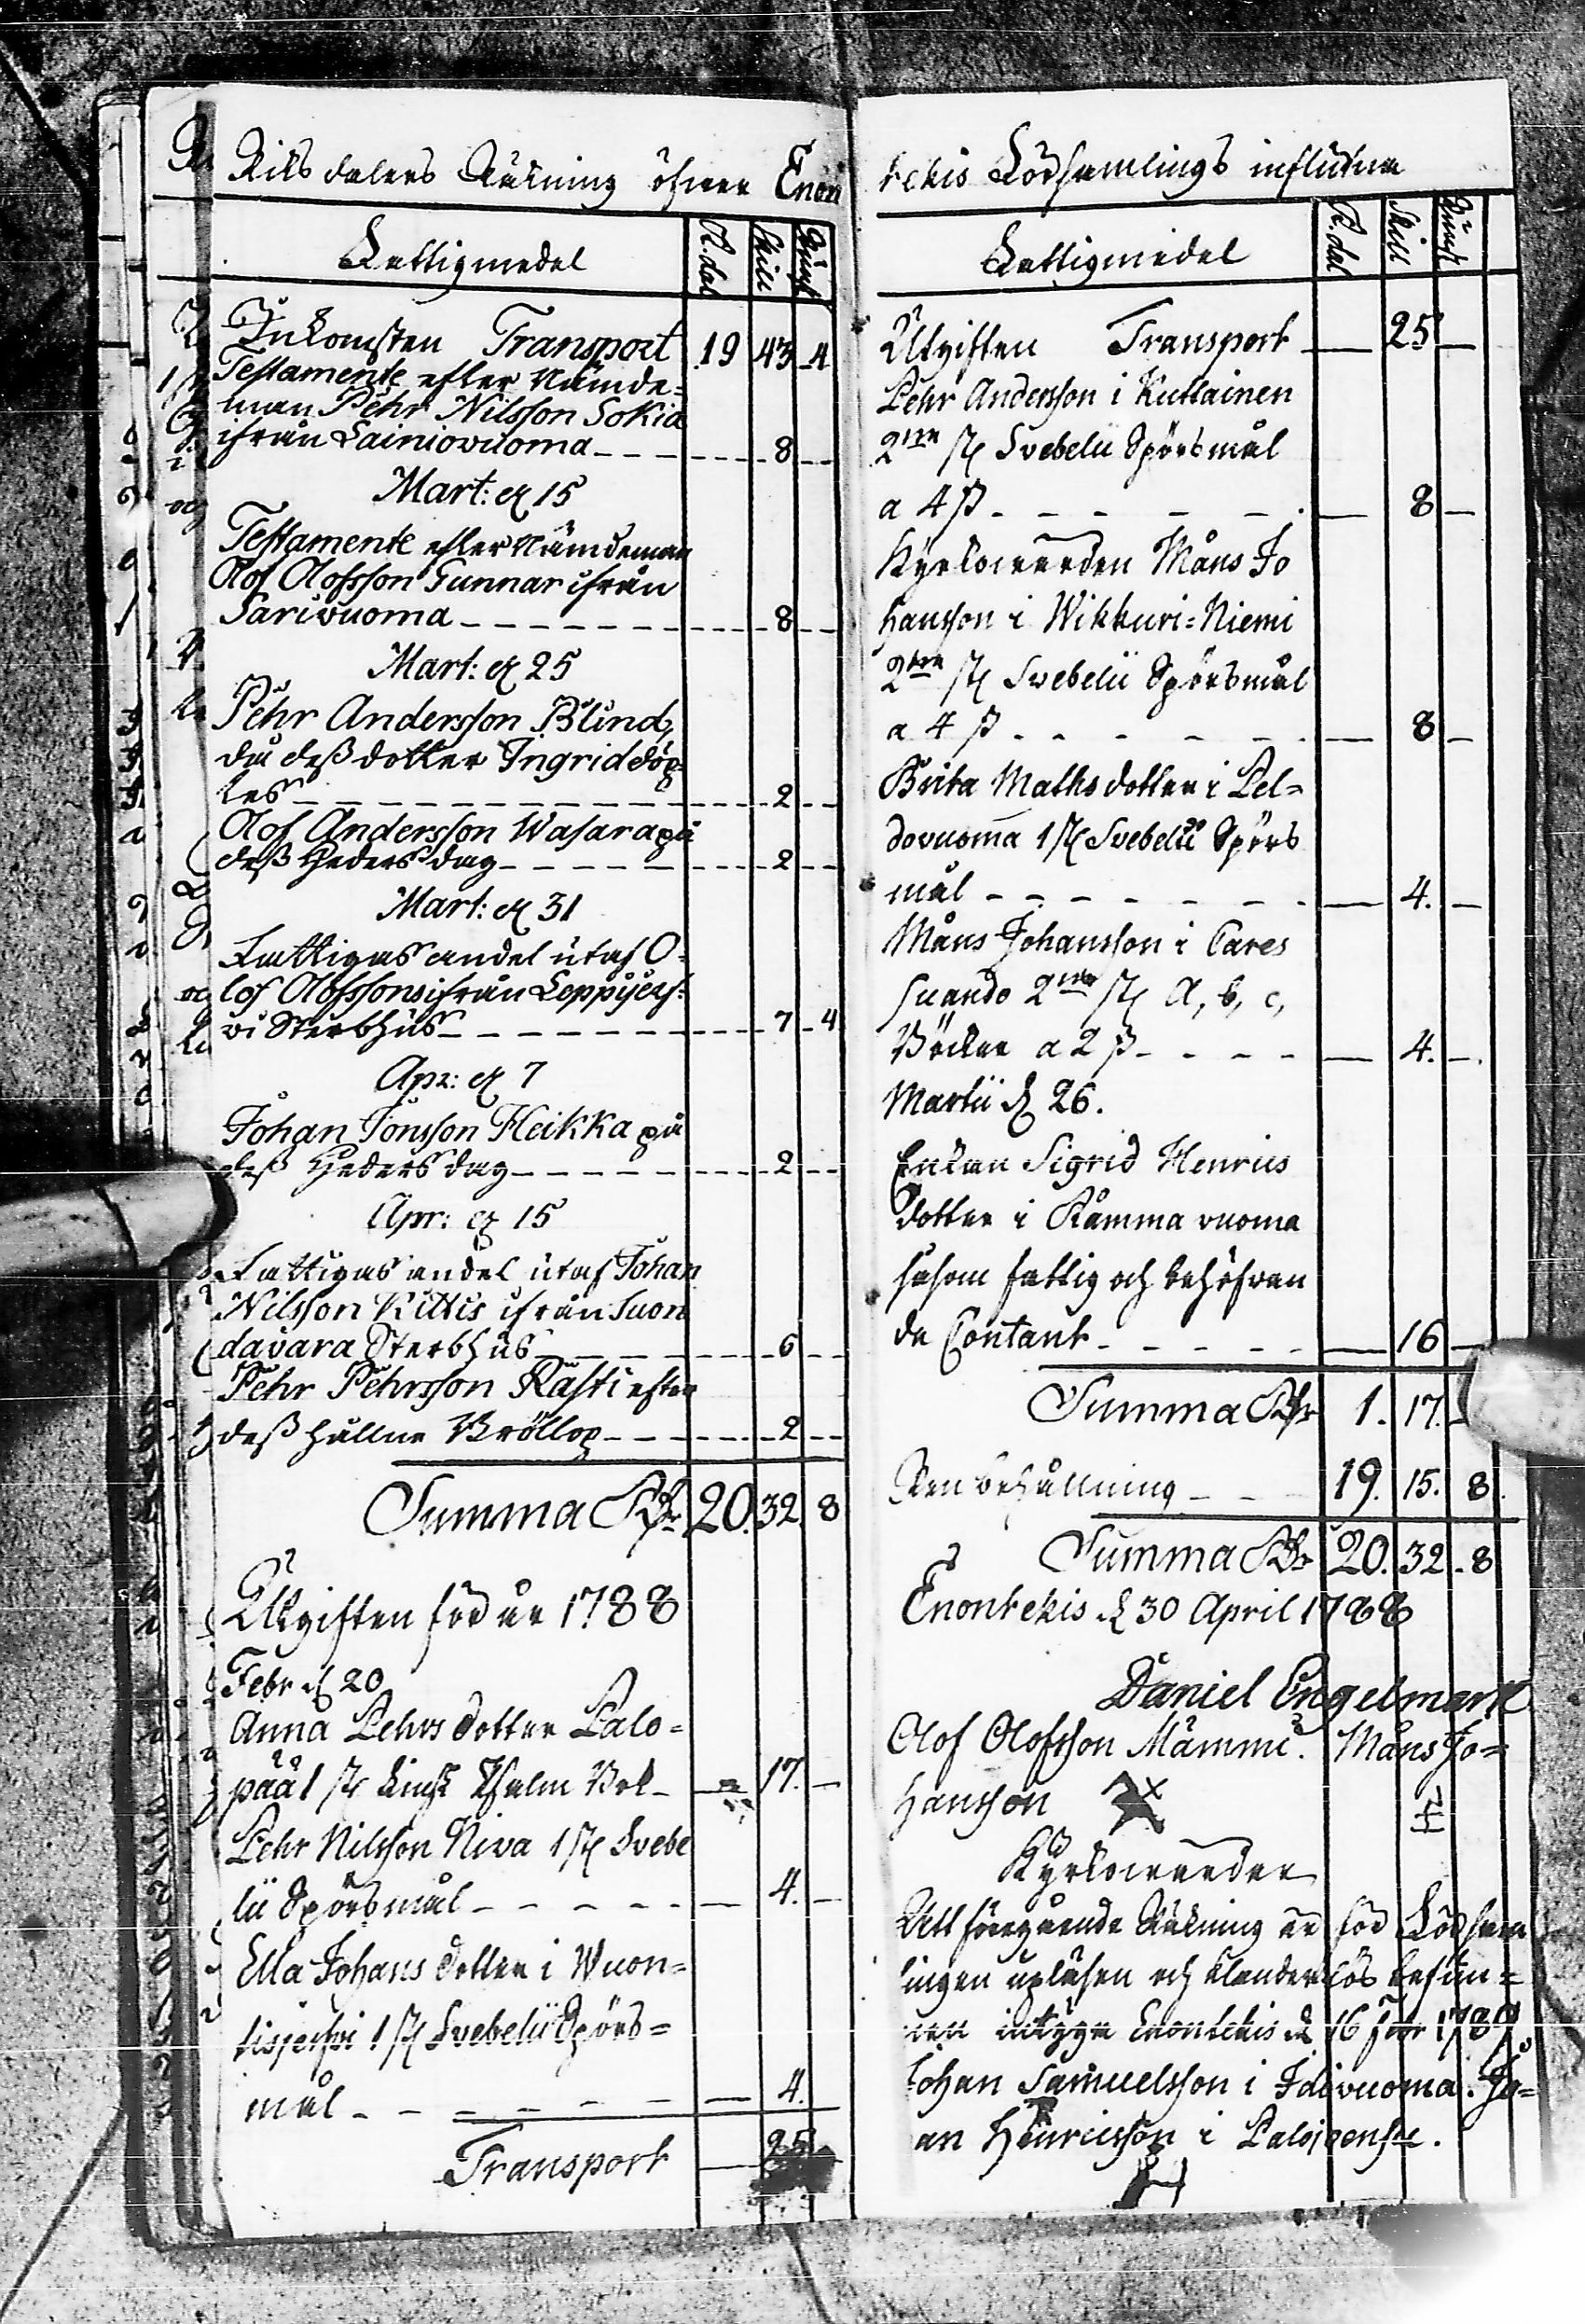 Riksdalers Räkning öfwer Enon
Fattigmedel R.dal Skill Runst
Inkomsten Transport 19 43 4
Testamente efter Nämde=
man Pehr Nilsson Sokia
ifrån Lainiovuoma 8
Mart: d 15
Testamente efter Nämdeman
Olof Olofsson Gunnar ifrån
Sarivuoma 8
Mart: d 25
Pehr Andersson Blind,
då dess dotter Ingrid döp=
tes 2
Olof Andersson Wasara på
dess Heders dag 2
Mart: d 31
Fattigas andel utaf O=
lof Olofssons ifrån Leppäjerf=
vi Sterbhus 7 4
Apr: d 7
Johan Jönsson Heikka på
dess Heders dag 2
Apr: d 15
Fattigas andel utaf Johan
Nilsson Kittis ifrån Suon
davara Sterbhus 6
Pehr Pehrsson Rasti efter
dess hållne Bröllop 2
Summa Rdr 20. 32. 8
Utgiften för år 1788
Febr d 20
Anna Pehrs dotter Palo=
pää 1 st Psalm Bok 17.
Pehr Nilsson Niva 1 st Svebe
lii Spörsmål 4.
Ella Johans dotter i Wuon=
tisjerfvi 1 st Svebelii Spörs=
mål 4.
Transport 25
tekis Församlings influtne
Fattigmedel R.dal Skill Runst
Utgiften Transport 25
Pehr Andersson i Kuttainen
2ne st Svebelii Spörsmål
a 4 ß 8
Kyrkowärden Måns Jo
hansson i Wikkuri=Niemi
2ne st Svebelii Spörsmål
a 4 ß 8
Brita Mathsdotter i Pel=
dovuoma 1 st Svebelii Spörs
mål 4.
Måns Johansson i Cares
suando 2ne st A, b, c,
Böcker a 2 ß 4.
Martii d 26.
Enkan Sigrid Henrics
dotter i Råmma vuoma
såsom fattig och behöfvan
de Contant 16
Summa Rdr 1. 17.
Ren behållning 19. 15. 8.
Summa Rdr 20. 32. 8
Enontekis d 30 April 1788
Daniel Engelmark
Olof Olofsson Mämmi. Måns Jo=
hansson
Kyrkowärdar
Att föregående Räkning är för Försam
lingen upläsen och klanderlös befun=
nen intygar Enontekis d 16 1789
Johan Samuelsson i Idivuoma. Jo=
an Henricsson i Palojoensu.